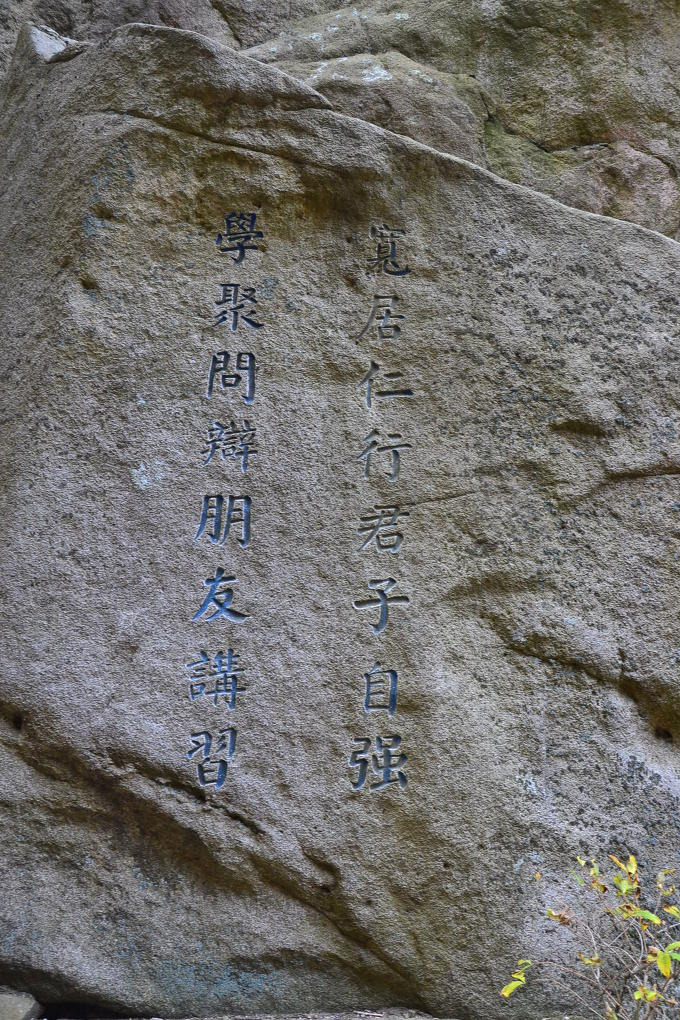 寬居仁行君子自强
學聚問辯朋友講習